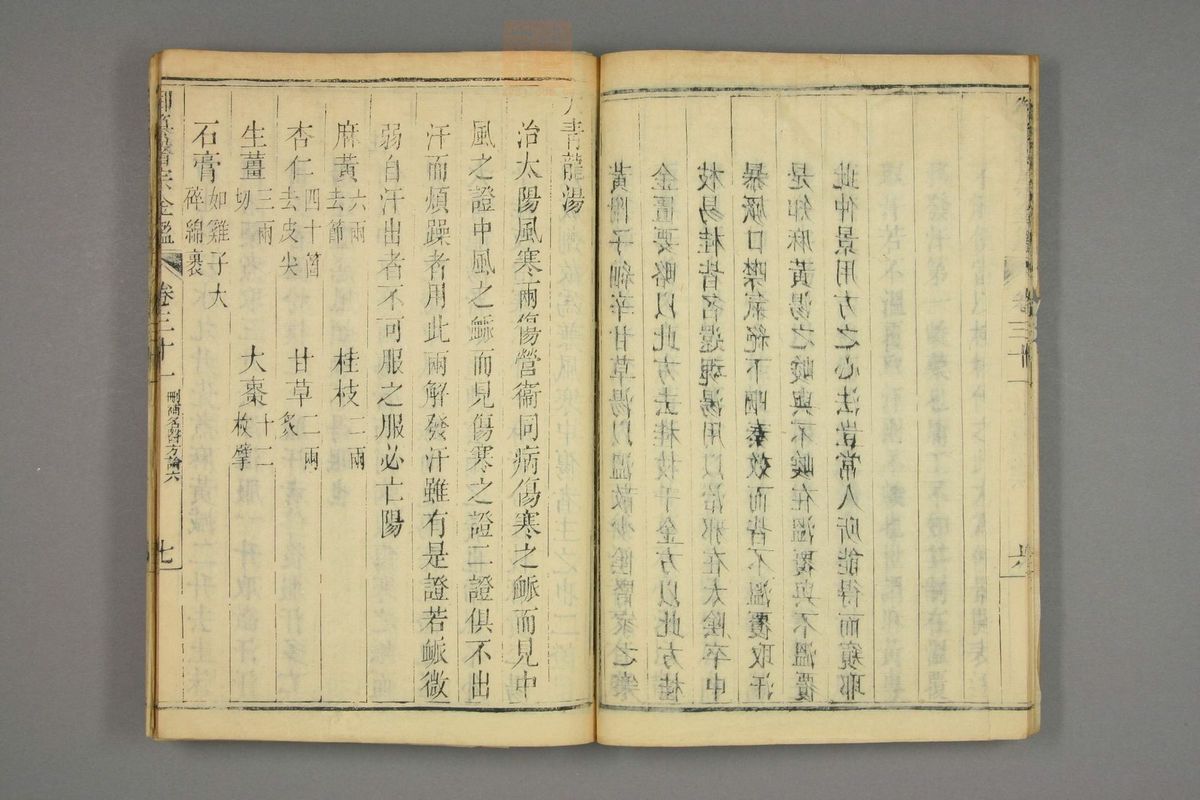 黃附子細辛甘草湯以溫散少陰腎家之寒
金匱要略以此方去桂枝千金方以此方桂
枝易桂皆名還魂湯用以治邪在太陰卒中
暴厥口噤氣絕下咽奏效而皆不溫覆取汗
是知麻黃湯之峻與不峻在溫覆與不溫覆
此仲景用方之心法豈常人所能得而窺耶
卷三十一
六
大青龍湯
治太陽風寒兩傷營衞同病傷寒之脈而見中
風之證中風之脈而見傷寒之證二證俱不出
汗而煩躁者用此兩解發汗雖有是證若脈微
弱自汗出者不可服之服必亡陽
麻黃六兩去節 桂枝二兩
杏仁四十箇去皮尖 甘草二兩炙
生薑三兩切 大棗十二枚擘
石膏如雞子大碎綿裹
御纂醫宗金鑑 卷三十一 刪補名醫方論六 七